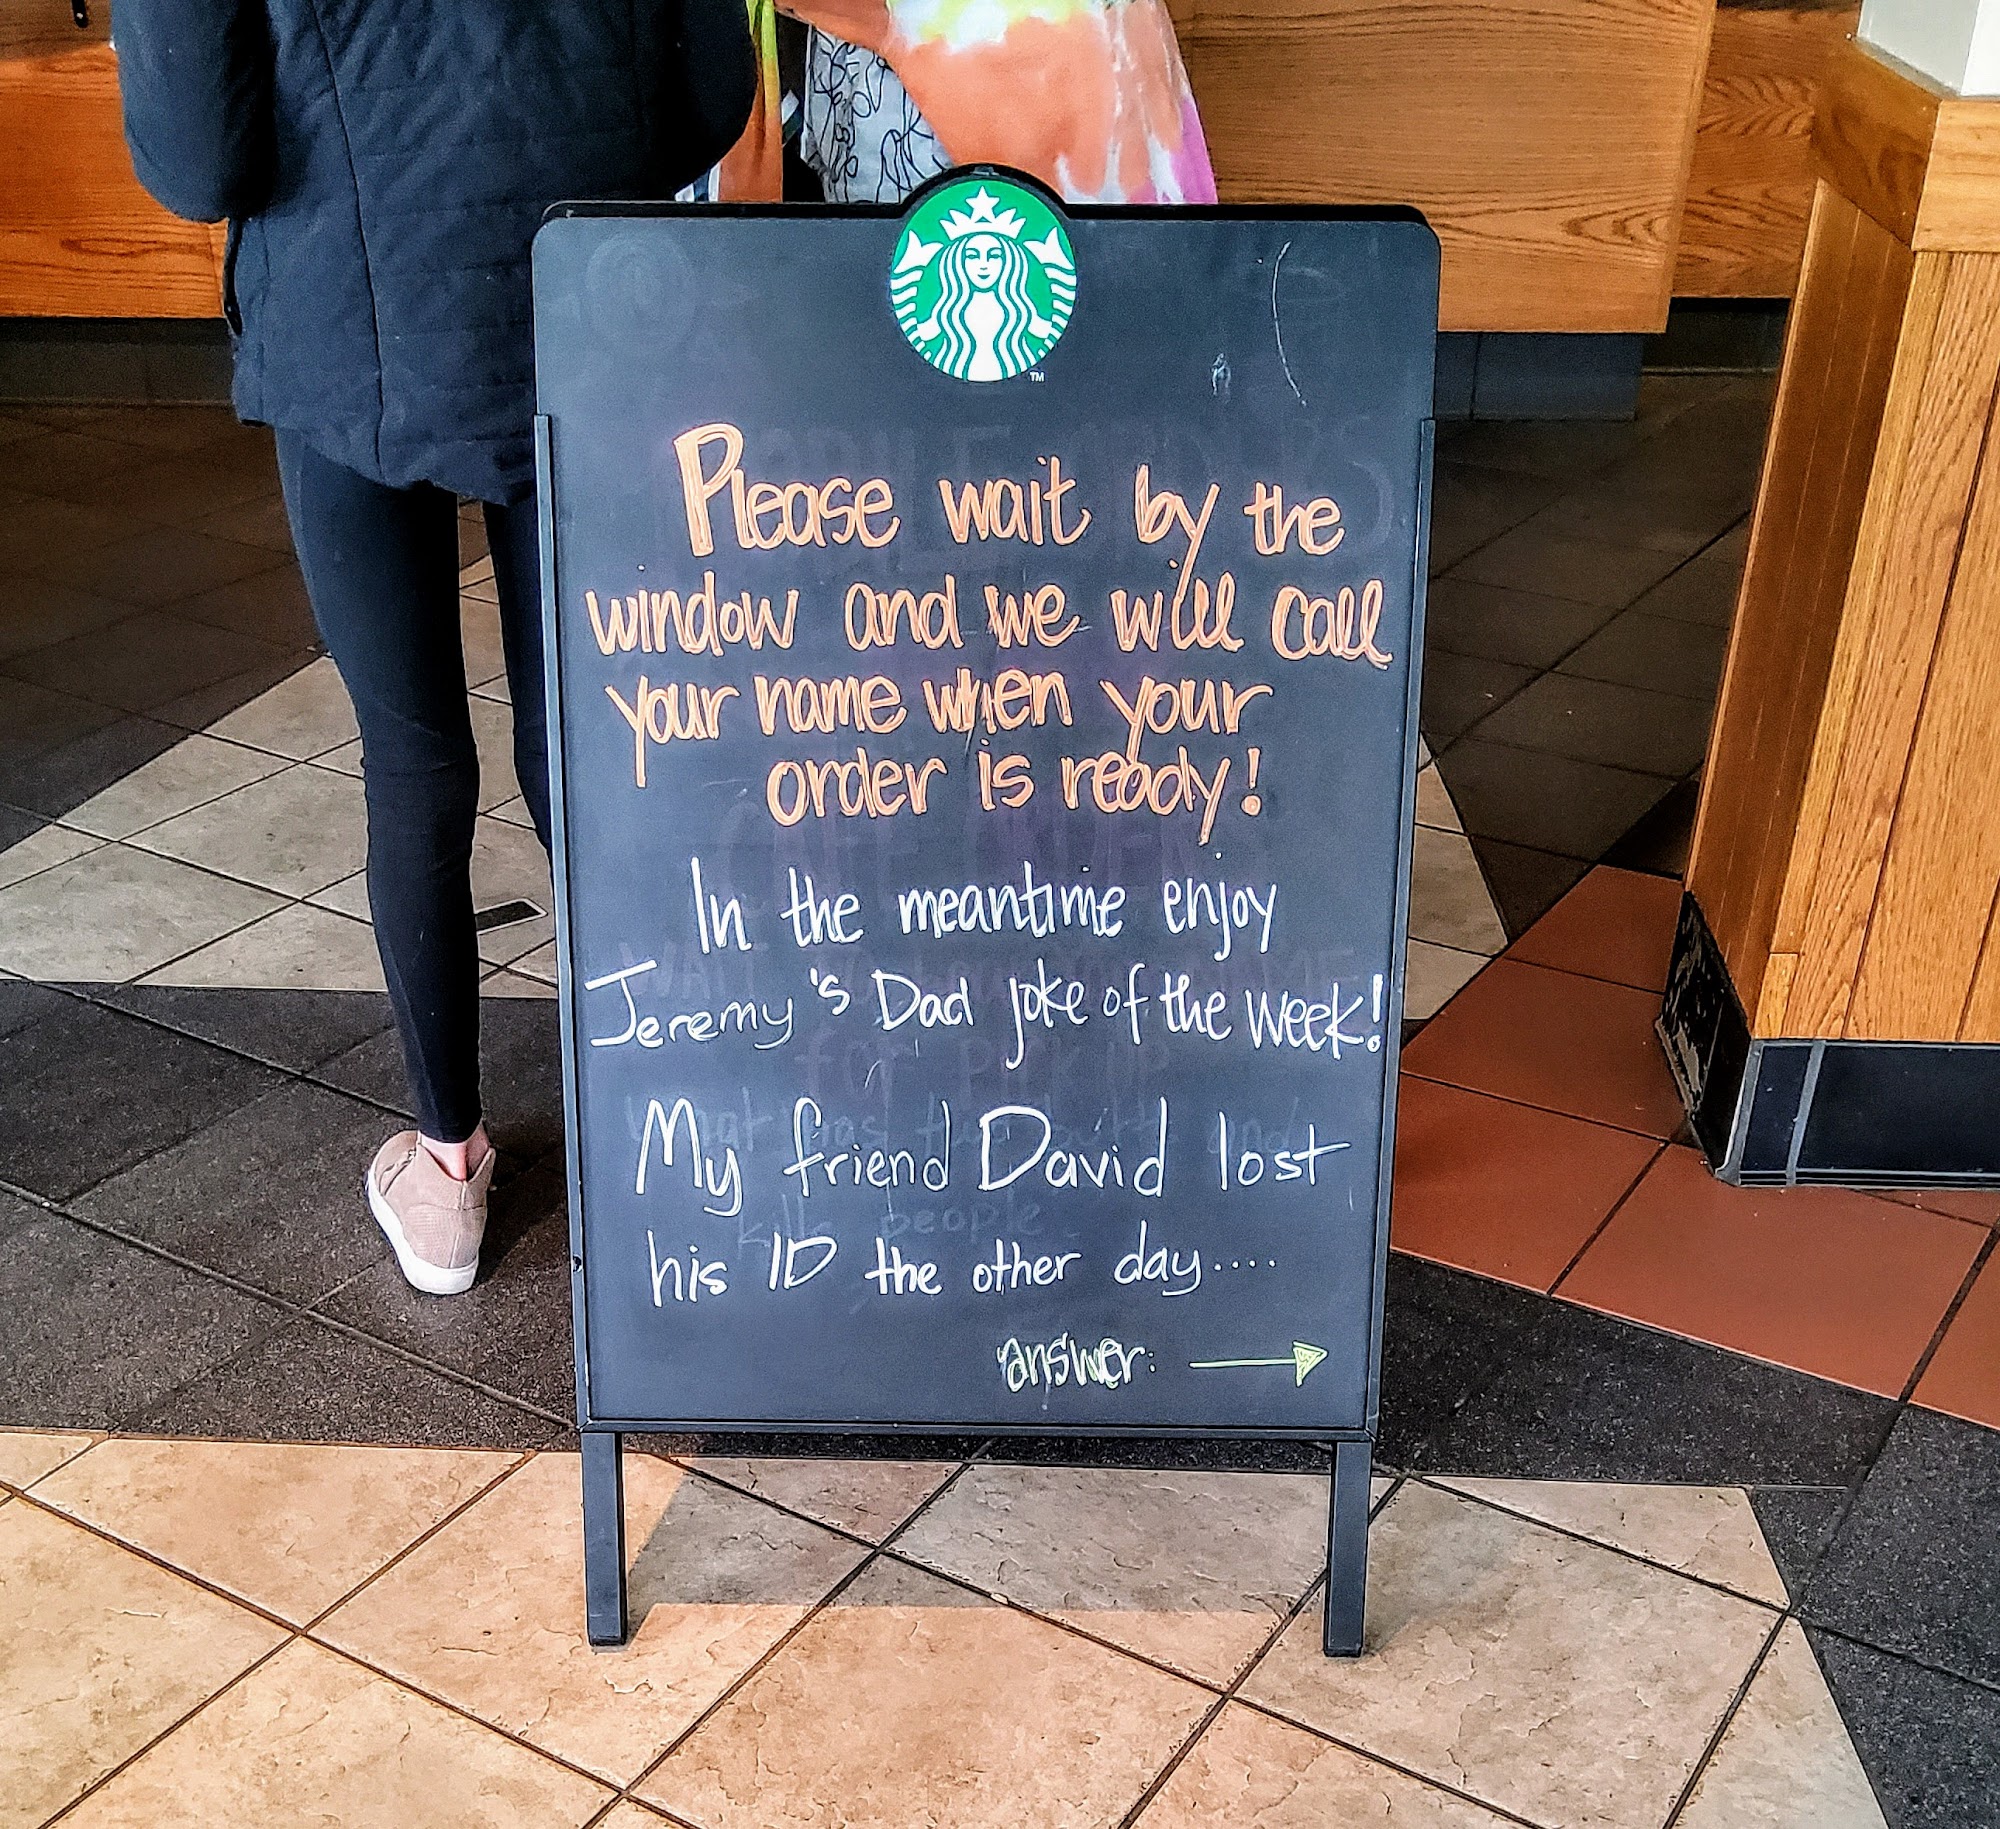 TM
Please wait by the
window and we will call
your name when your
order is ready!
In the meantime enjoy
Jeremy's Dad joke of the week!
My friend David lost
his ID the other day....
answer: